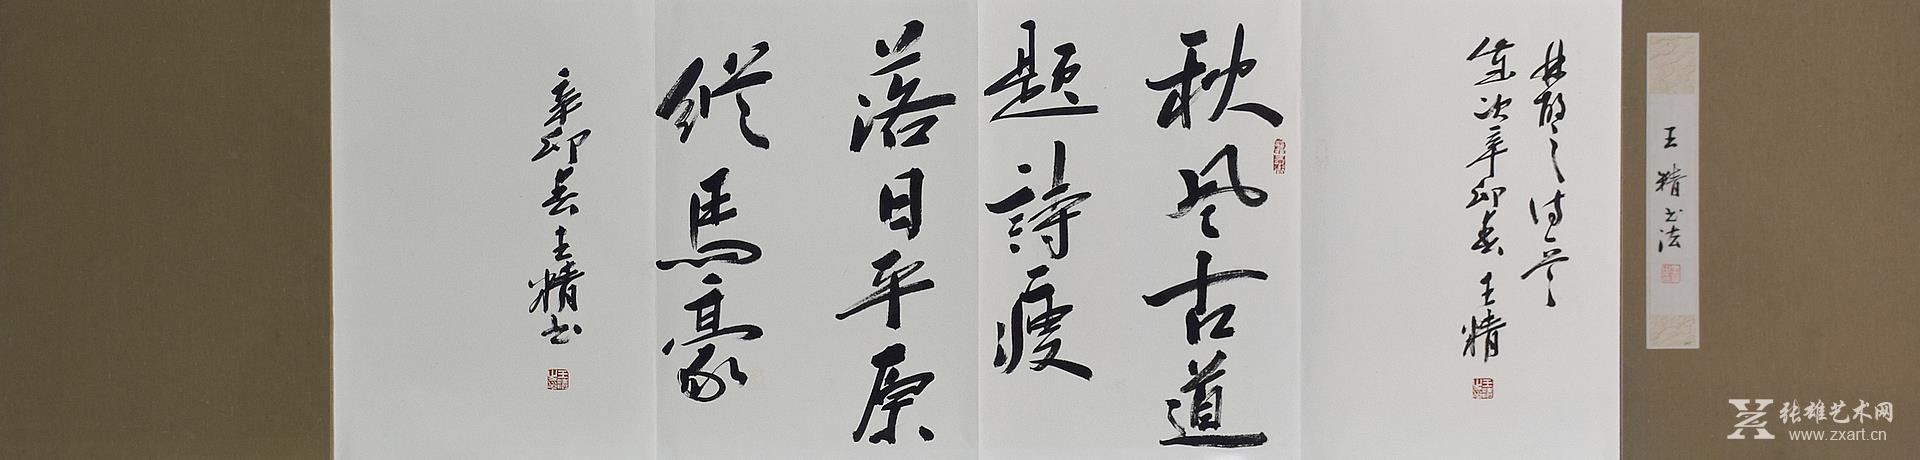 王精书法
林散之诗草
岁次辛卯春王精
秋风古道
题詩瘦
落日平原
纵馬豪
辛卯春王精书
张雄艺术网
www.zxart.cn